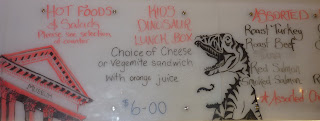 HOT FOODS
& Salads
Please see selection
at counter
MUSEUM
KIDS
DINOSAUR
LUNCH BOX
Choice of Cheese
or Vegemite sandwich
with orange juice
$6-00
ASSORTED
Roast Turkey
Roast Beef
Smoked Salmon